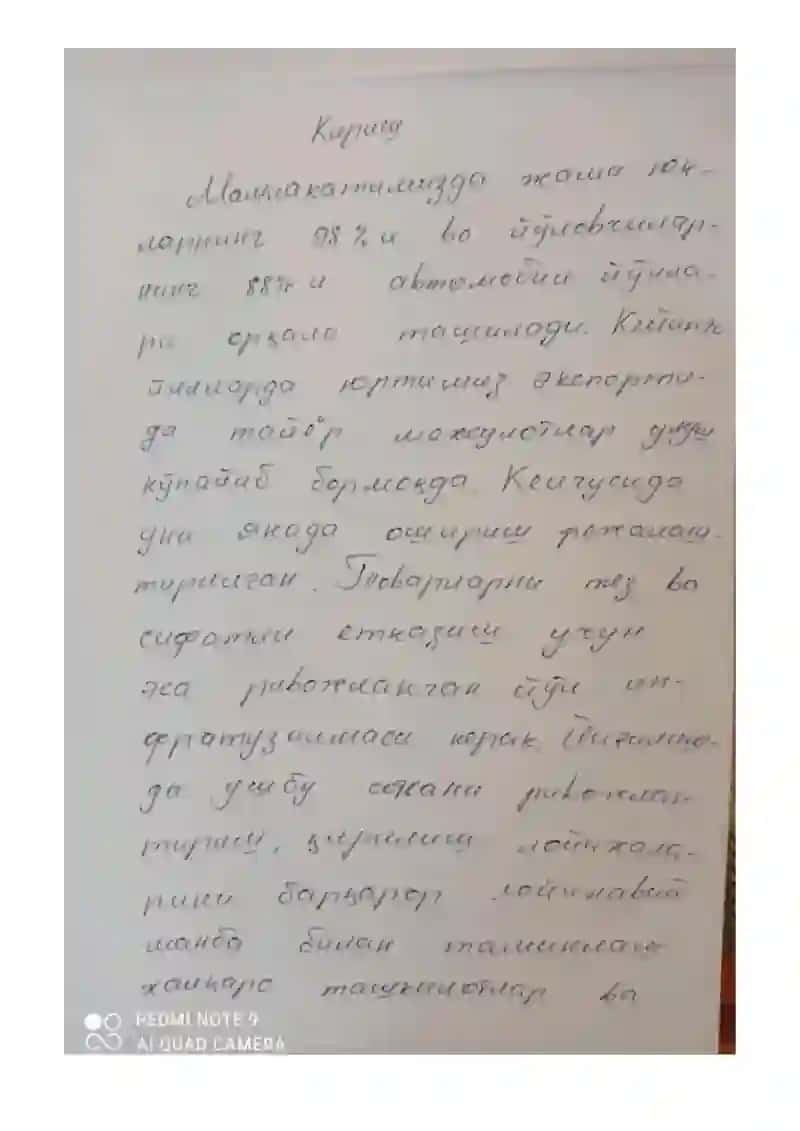 Кириш
Мамлакатимизда жами юк-
ларнинг 98 % и ва йўловчилар-
нинг 88% и автомобил йўлла-
ри орқали ташилади. Кейинги
йилларда юртимиз экспорти-
да тайёр махсулотлар улуши
кўпайиб бормоқда. Келгусида
уни янада ошириш режалаш-
тирилган. Товарларни тез ва
сифатли етказиш учун
эса ривожланган йўл ин-
фратузилмаси керак. Йиғилиш-
да ушбу сохани ривожлан
тириш, қурилиш лойихала-
рини барқарор молиявий
манба билан таминлаш
халқаро ташкилотлар ва
REDMI NOTE 9
AI QUAD CAMERA